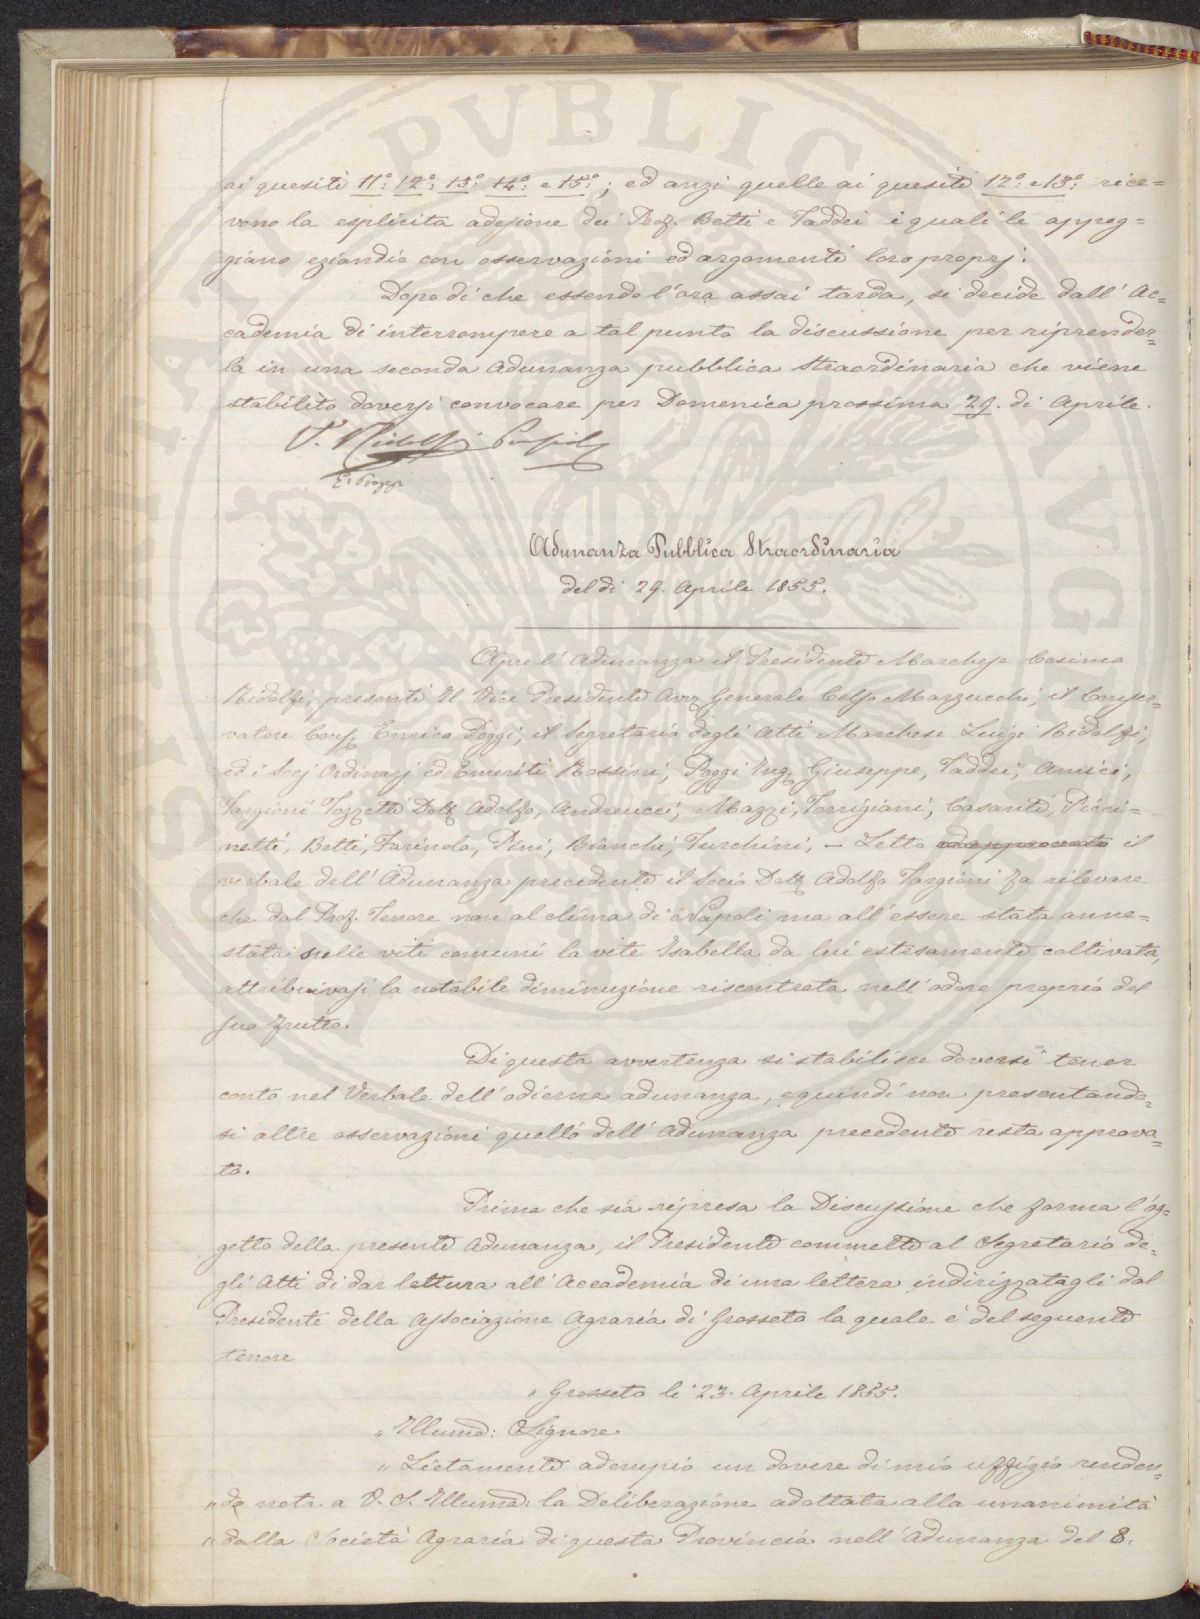 ai quesiti 11.° 12.° 13.° 14.° e 15.°; ed anzi quelle ai quesiti 12.° e 13.° rice=
vono la esplicita adesione dei Prof. Betti e Taddei i quali le appog=
giano eziandio con osservazioni ed argomenti loro proprj.
Dopo di che essendo l'ora assai tarda, si decide dall'Ac=
cademia di interrompere a tal punto la discussione per riprender=
la in una seconda Adunanza pubblica straordinaria che viene
stabilito doversi convocare per Domenica prossima 29. di Aprile.
C. Ridolfi
E. Poggi
Adunanza Pubblica Straordinaria
del dì 29. Aprile 1855.
Apre l'Adunanza il Presidente Marchese Cosimo
Ridolfi, presenti Il Vice Presidente Avv Generale Celso Marzucchi, il Conser=
vatore Cons Enrico Poggi, il Segretario degli Atti Marchese Luigi Ridolfi,
ed i Socj Ordinarj ed Emeriti Rossini, Poggi Ing Giuseppe, Taddei, Amici,
Targioni Tozzetti Dott Adolfo, Andreucci, Mazzi, Torrigiani, Casanti, Picci=
netti, Betti, Farinola, Pini, Bianchi, Turchini, – Letto ed approvato il
verbale dell'Adunanza precedente il Socio Dott Adolfo Targioni fa rilevare
che dal Prof. Tenore non al clima di Napoli ma all'essere stata anne=
stata sulle viti comuni la vite Isabella da lui estesamente coltivata,
attribuivasi la notabile diminuzione riscontrata nell'odore proprio del
suo frutto.
Di questa avvertenza si stabilisce doversi tener
conto nel Verbale dell'odierna adunanza, e quindi non presentando=
si altre osservazioni quello dell'Adunanza precedente resta approva=
to.
Prima che sia ripresa la Discussione che forma l'og=
getto della presente Adunanza, il Presidente commette al Segretario de=
gli Atti di dar lettura all'Accademia di una lettera indirizzatagli dal
Presidente della Associazione Agraria di Grosseto la quale è del seguente
tenore
" Grosseto li 23. Aprile 1855.
" Illumo: Signore
" Lietamente adempio un dovere di mio uffizio renden=
" do nota a V. S. Illuma: la Deliberazione adottata alla unanimità
" dalla Società Agraria di questa Provincia nell'Adunanza del 8.
PVBLICA